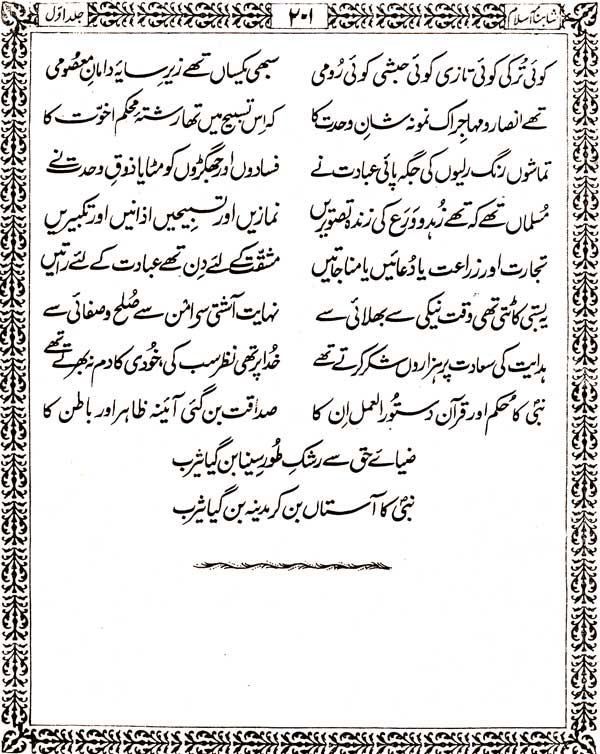 شاہنامۂ اسلام ۲۰۱ جلد اوّل
کوئی تُرکی کوئی تازی کوئی حبشی کوئی رُومی سبھی یکساں تھے زیرِ سایۂ دامانِ معصُومی
تھے انصار و مہاجر اک نمونہ شانِ وحدت کا کہ اِس تسبیح میں تھا رشتۂ محکم اخوّت کا
تماشوں رنگ رلیوں کی جگہ پائی عبادت نے فسادوں اور جھگڑوں کو مٹایا ذوقِ وحدت نے
مُسلماں تھے کہ تھے زُہد و وَرَع کی زندہ تصویریں نمازیں اور تسبیحیں اذانیں اور تکبیریں
تجارت اور زراعت یا دُعائیں یا مناجاتیں مشقّت کے لئے دِن تھے عبادت کے لئے راتیں
یہ بستی کاٹتی تھی وقت نیکی سے بھلائی سے نہایت آشتی سے امن سے صُلح و صفائی سے
ہدایت کی سعادت پر ہزاروں شکر کرتے تھے خُدا پر تھی نظر سب کی، خُودی کا دم نہ بھرتے تھے
نبیؐ کا حُکم اور قرآن دستُور العمل اِن کا صداقت بن گئی آئینہ ظاہر اور باطن کا
ضیائے حق سے رشکِ طُورِ سینا بن گیا یثرب
نبیؐ کا آستاں بن کر مدینہ بن گیا یثرب